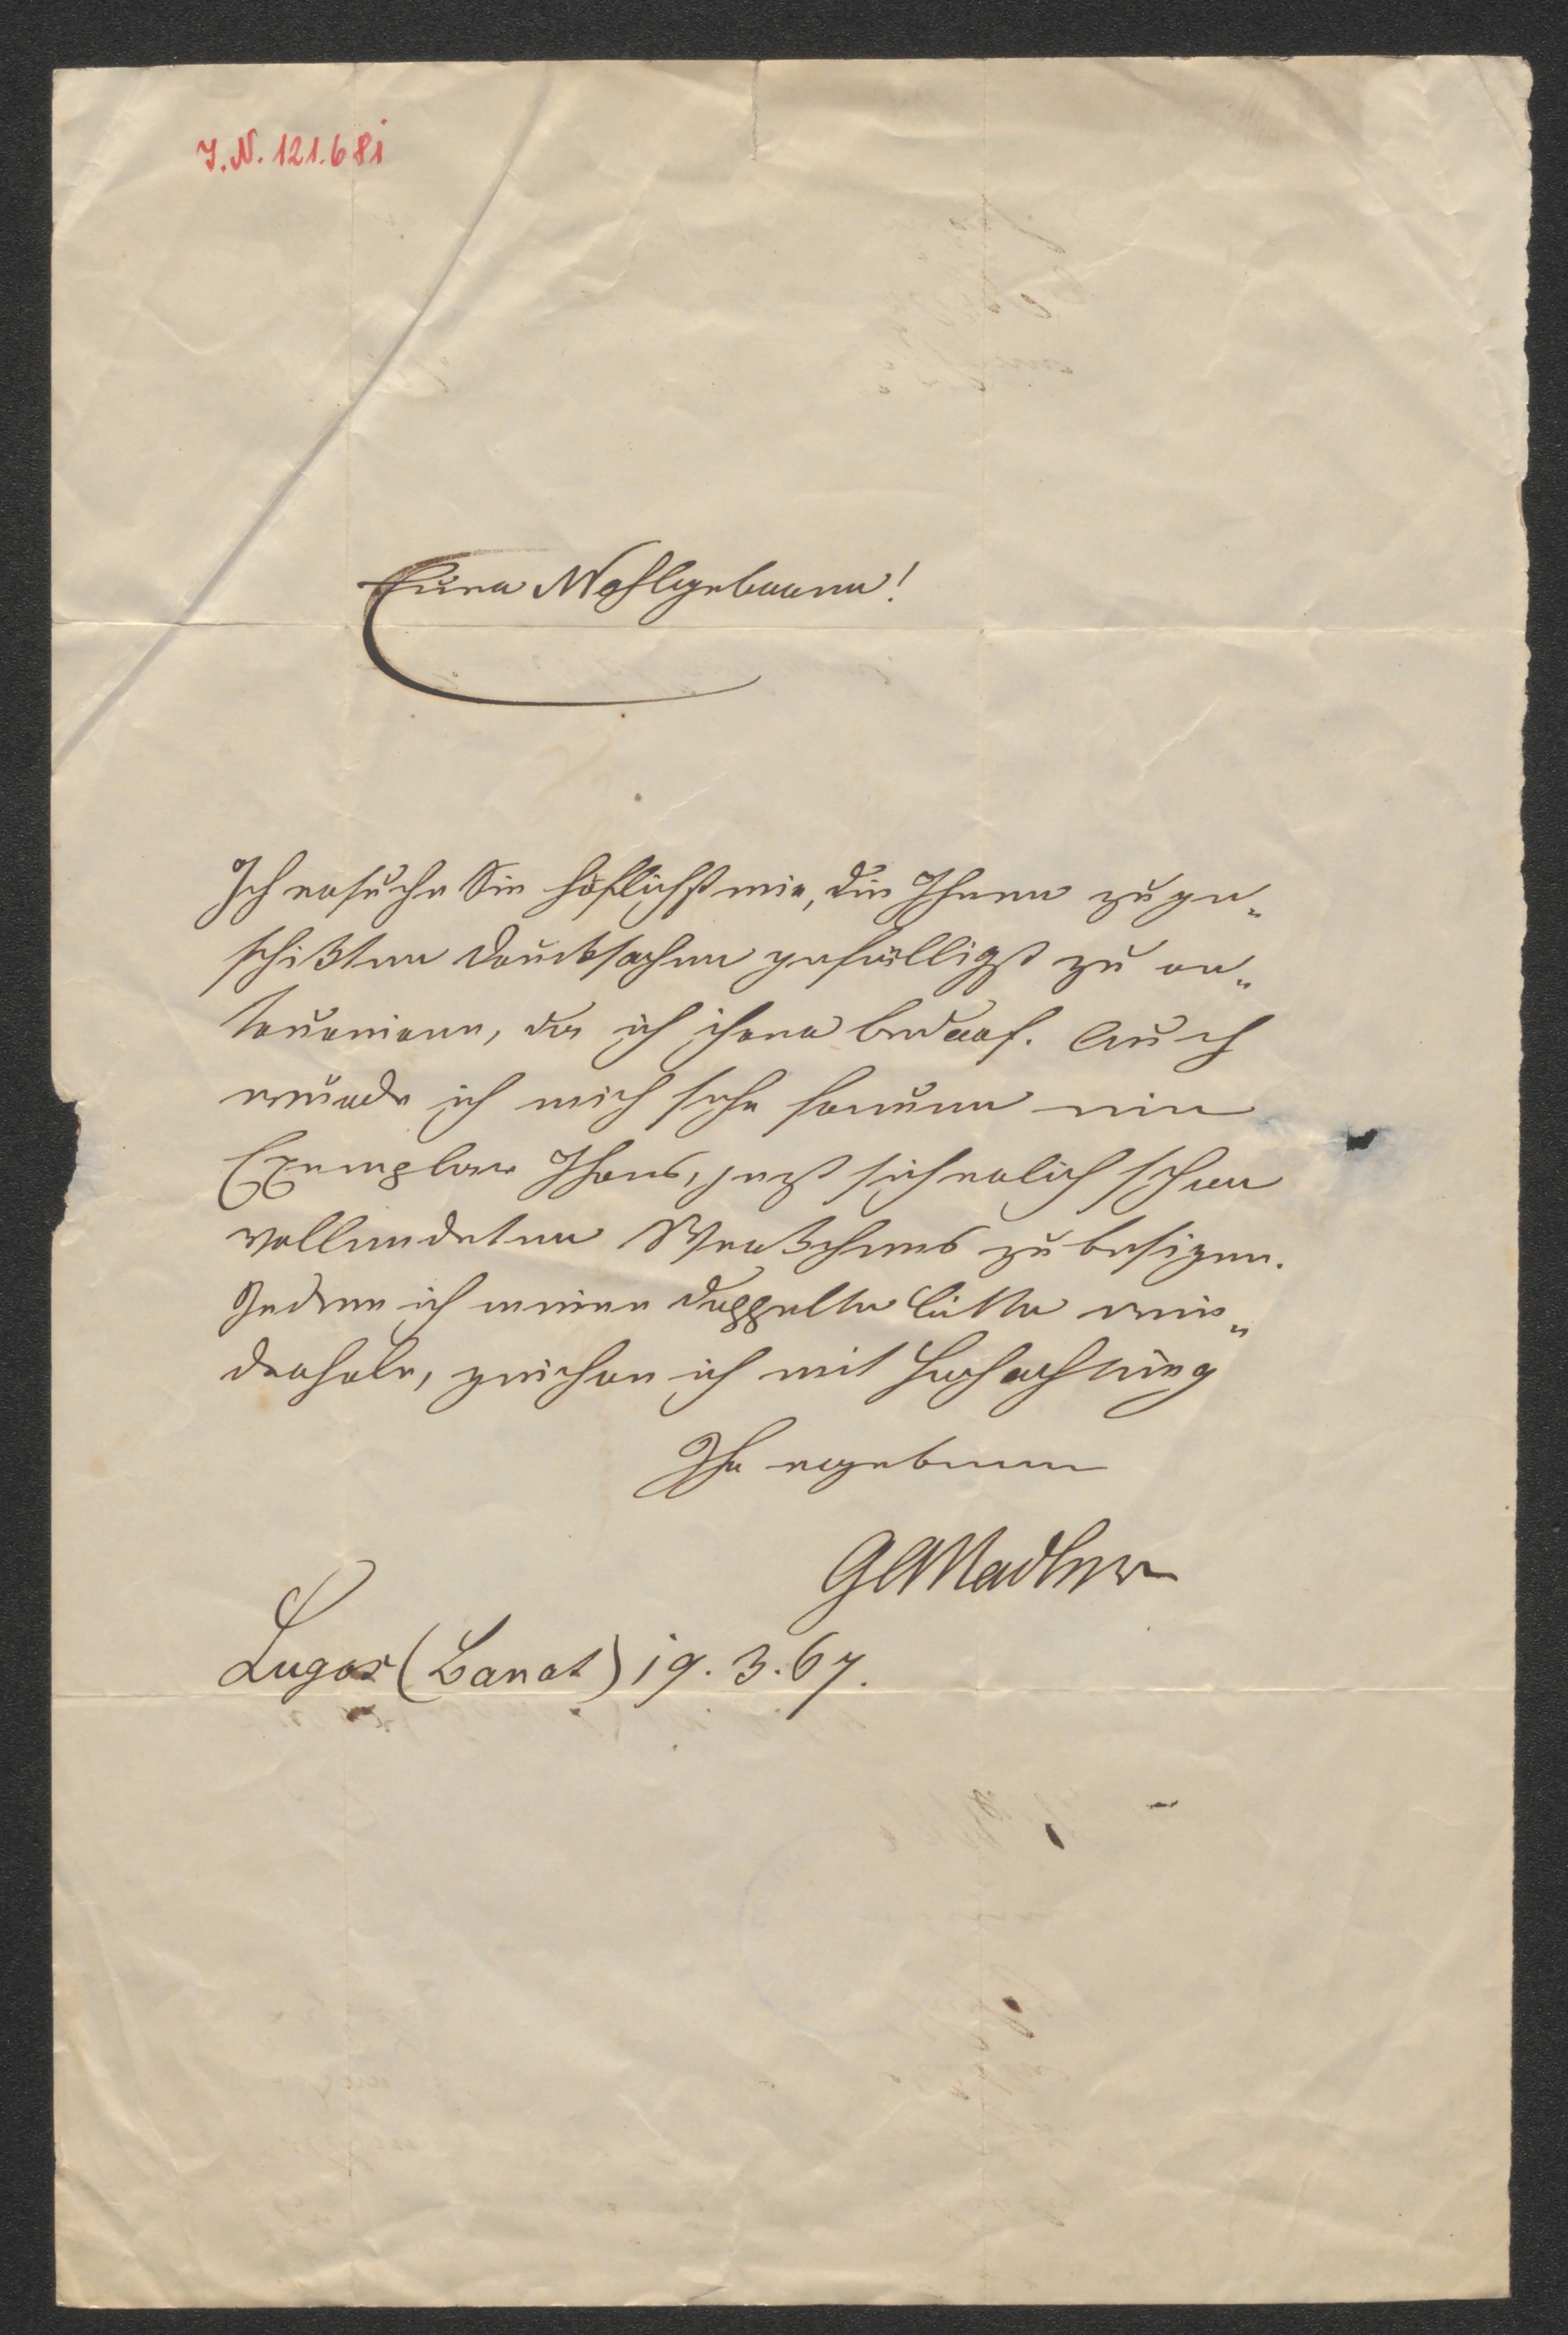 I.N. 121.681
Euer Wohlgeboren!
Ich ersuche Sie höflichst mir, die Ihnen zuge„
schikten Drucksachen gefälligst zu re„
tourniren, da ich ihrer bedarf. Auch
würde ich mich sehr freuen ein
Exemplar Ihres, jezt sicherlich schon
vollendeten Werkchens zu besizen.
Indem ich meine doppelte Bitte wie„
derhole, zeichne ich mit Hochachtung
Ihr ergebener
Lugos (Banat) 19. 3. 67.